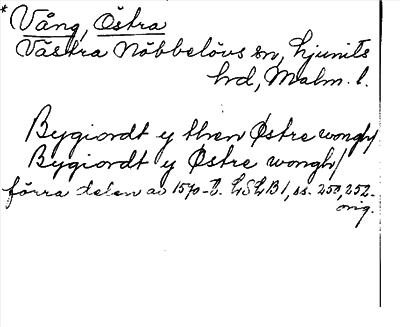 * Vång, Östra
Västra Nöbbelövs sn, Ljunits
hd, Malm. l.
Bygiordt y then Østre wongh/
Bygiordt y Østre wongh/
förra delen av 1570-t. LSLB1, ss. 250, 252.
orig.